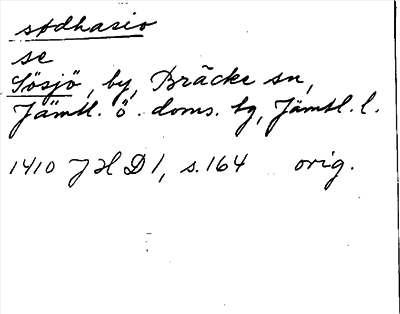 stodhasio
se
Sösjö, by, Bräcke sn,
Jämtl. ö. doms. hg, Jämtl. l.
1410 JHD 1, s. 164 orig.